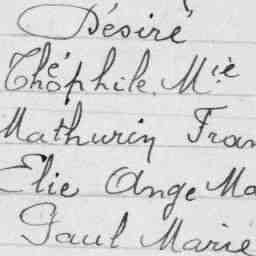 Désiré
Théophile Mie
Mathurin Fran
Elie Ange Ma
Paul Marie